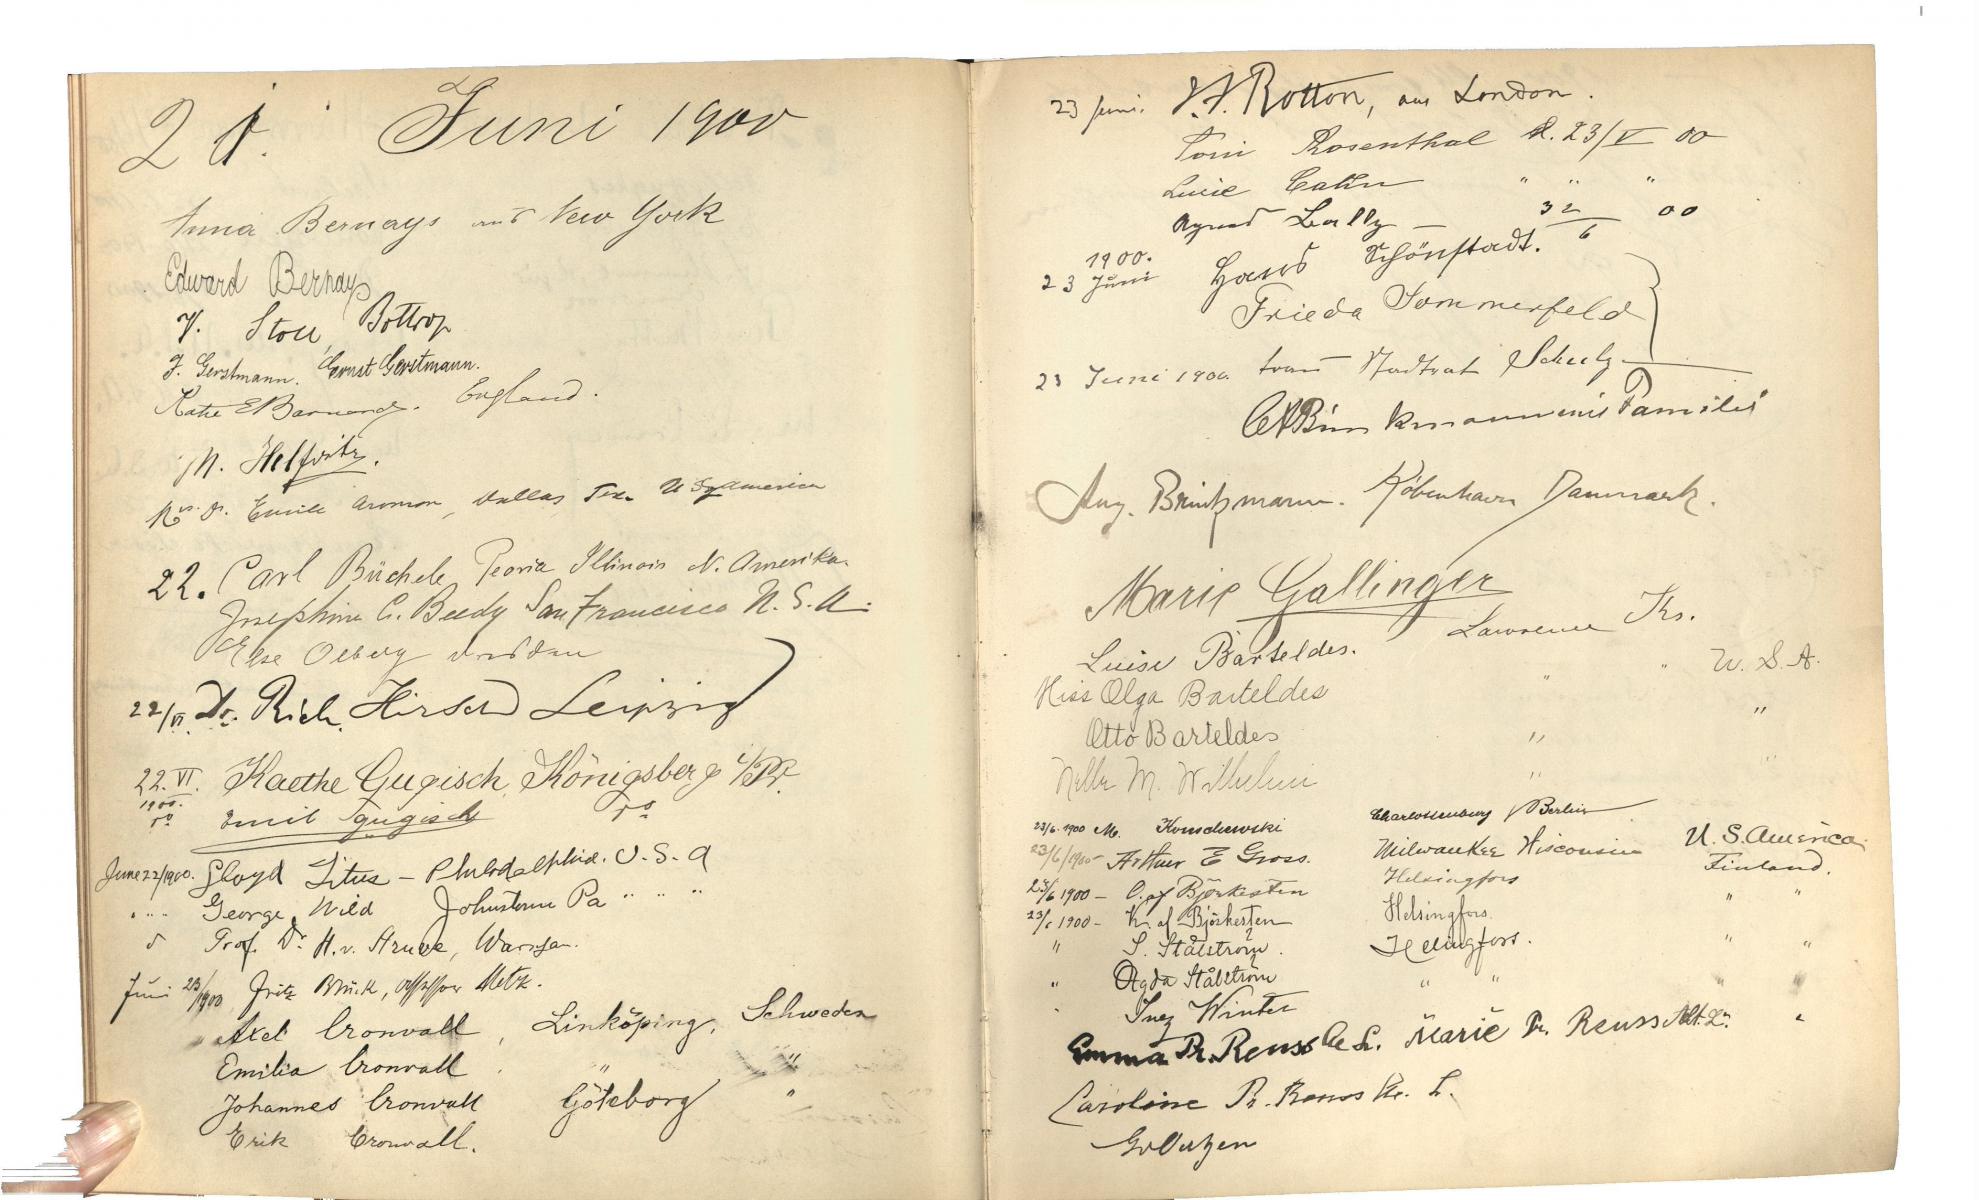 21. Juni 1900
Anna Bernays aus New York
Edward Bernays
V. Stoll, Bottrop
J. Gerstmann. Ernst Gerstmann.
Katie E Barnard. England.
M. Helfritz.
Mrs. Dr. Emile Aronson, Dallas Tex. U S America
22. Carl Büchele Peoria Illinois N. Amerika.
Josephine C. Beedy San Francisco U. S. A.
Else Olberg Dresden
22/VI Dr. Rich. Hirsch Leipzig
22. VI. 1900. Kaethe Gugisch, Königsberg i/Pr.
do Emil Gugisch do
June 22/1900. Lloyd Titus – Philadelphia. U. S. A
" " " George Wild Johnstown Pa " " "
d Prof. Dr. H. v. Struve, Warschau.
Juni 23/1900 Fritz Brück, Assessor Metz.
Axel Cronvall, Linköping, Schweden
Emilia Cronvall " "
Johannes Cronvall Göteborg "
Erik Cronvall.
23 Juni. Rotton, aus London.
Toni Rosenthal d. 23/V 00
Lucie Cahn " " "
Agnes Lally — 00
1900.
23 Juni Hans Schönstadt.
Frieda Sommerfeld
23 Juni 1900. Frau Stadtrat Schulz
Brinkmann und Familie
Aug. Brinkmann. København Danmark.
Marie Gallinger
Luise Barteldes. Lawrence Ks.
Miss Olga Barteldes " " U. S. A.
Otto Barteldes " "
M. Wilhelmi " "
23/6. 1900 M. Charlottenburg / Berlin
23/6/1900 Arthur E Gross. Milwaukee Wisconsin U. S. America
23/6 1900 – C. af Björkesten Helsingfors Finland.
23/6 1900 – K. af Björkesten Helsingfors " "
" S. Stålström. Helsingfors. " "
" Agda Stålström " " " "
Inez Winter
Emma Pr. Reuss Marie Pr. Reuss
Caroline Pr. Reuss
GvOertzen